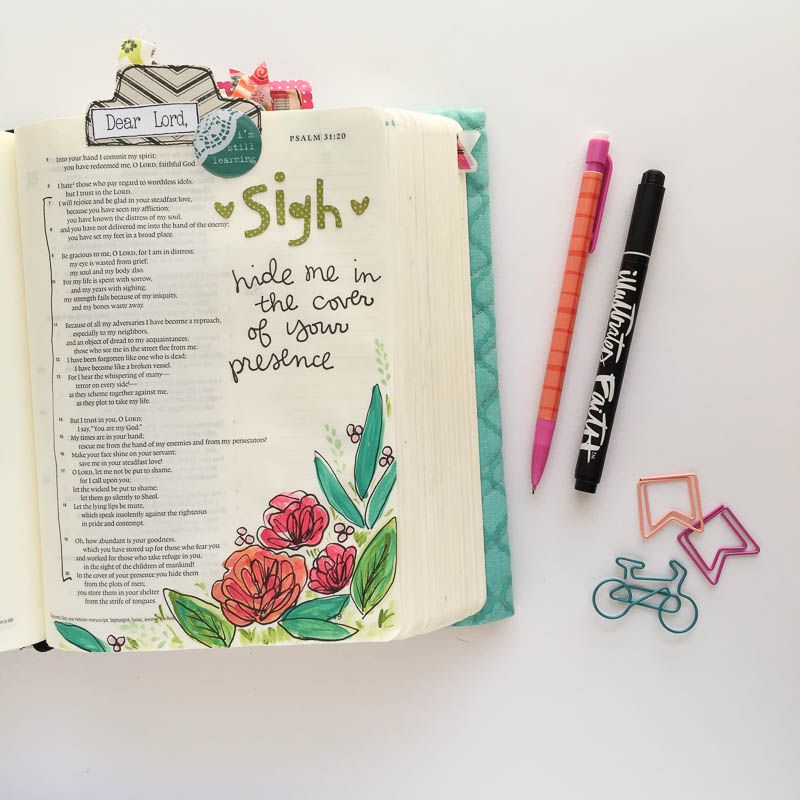 Dear Lord,
i'm
still
learning
PSALM 31:20
5 Into your hand I commit my spirit;
you have redeemed me, O LORD, faithful God.
6 I hate those who pay regard to worthless idols,
but I trust in the LORD.
7 I will rejoice and be glad in your steadfast love,
because you have seen my affliction;
you have known the distress of my soul,
8 and you have not delivered me into the hand of the enemy;
you have set my feet in a broad place.
9 Be gracious to me, O LORD, for I am in distress;
my eye is wasted from grief;
my soul and my body also.
10 For my life is spent with sorrow,
and my years with sighing;
my strength fails because of my iniquity,
and my bones waste away.
11 Because of all my adversaries I have become a reproach,
especially to my neighbors,
and an object of dread to my acquaintances;
those who see me in the street flee from me.
12 I have been forgotten like one who is dead;
I have become like a broken vessel.
13 For I hear the whispering of many—
terror on every side!—
as they scheme together against me,
as they plot to take my life.
14 But I trust in you, O LORD;
I say, "You are my God."
15 My times are in your hand;
rescue me from the hand of my enemies and from my persecutors!
16 Make your face shine on your servant;
save me in your steadfast love!
17 O LORD, let me not be put to shame,
for I call upon you;
let the wicked be put to shame;
let them go silently to Sheol.
18 Let the lying lips be mute,
which speak insolently against the righteous
in pride and contempt.
19 Oh, how abundant is your goodness,
which you have stored up for those who fear you
and worked for those who take refuge in you,
in the sight of the children of mankind!
20 In the cover of your presence you hide them
from the plots of men;
you store them in your shelter
from the strife of tongues.
Sigh
hide me in
the cover
of your
presence
illustrated
Faith